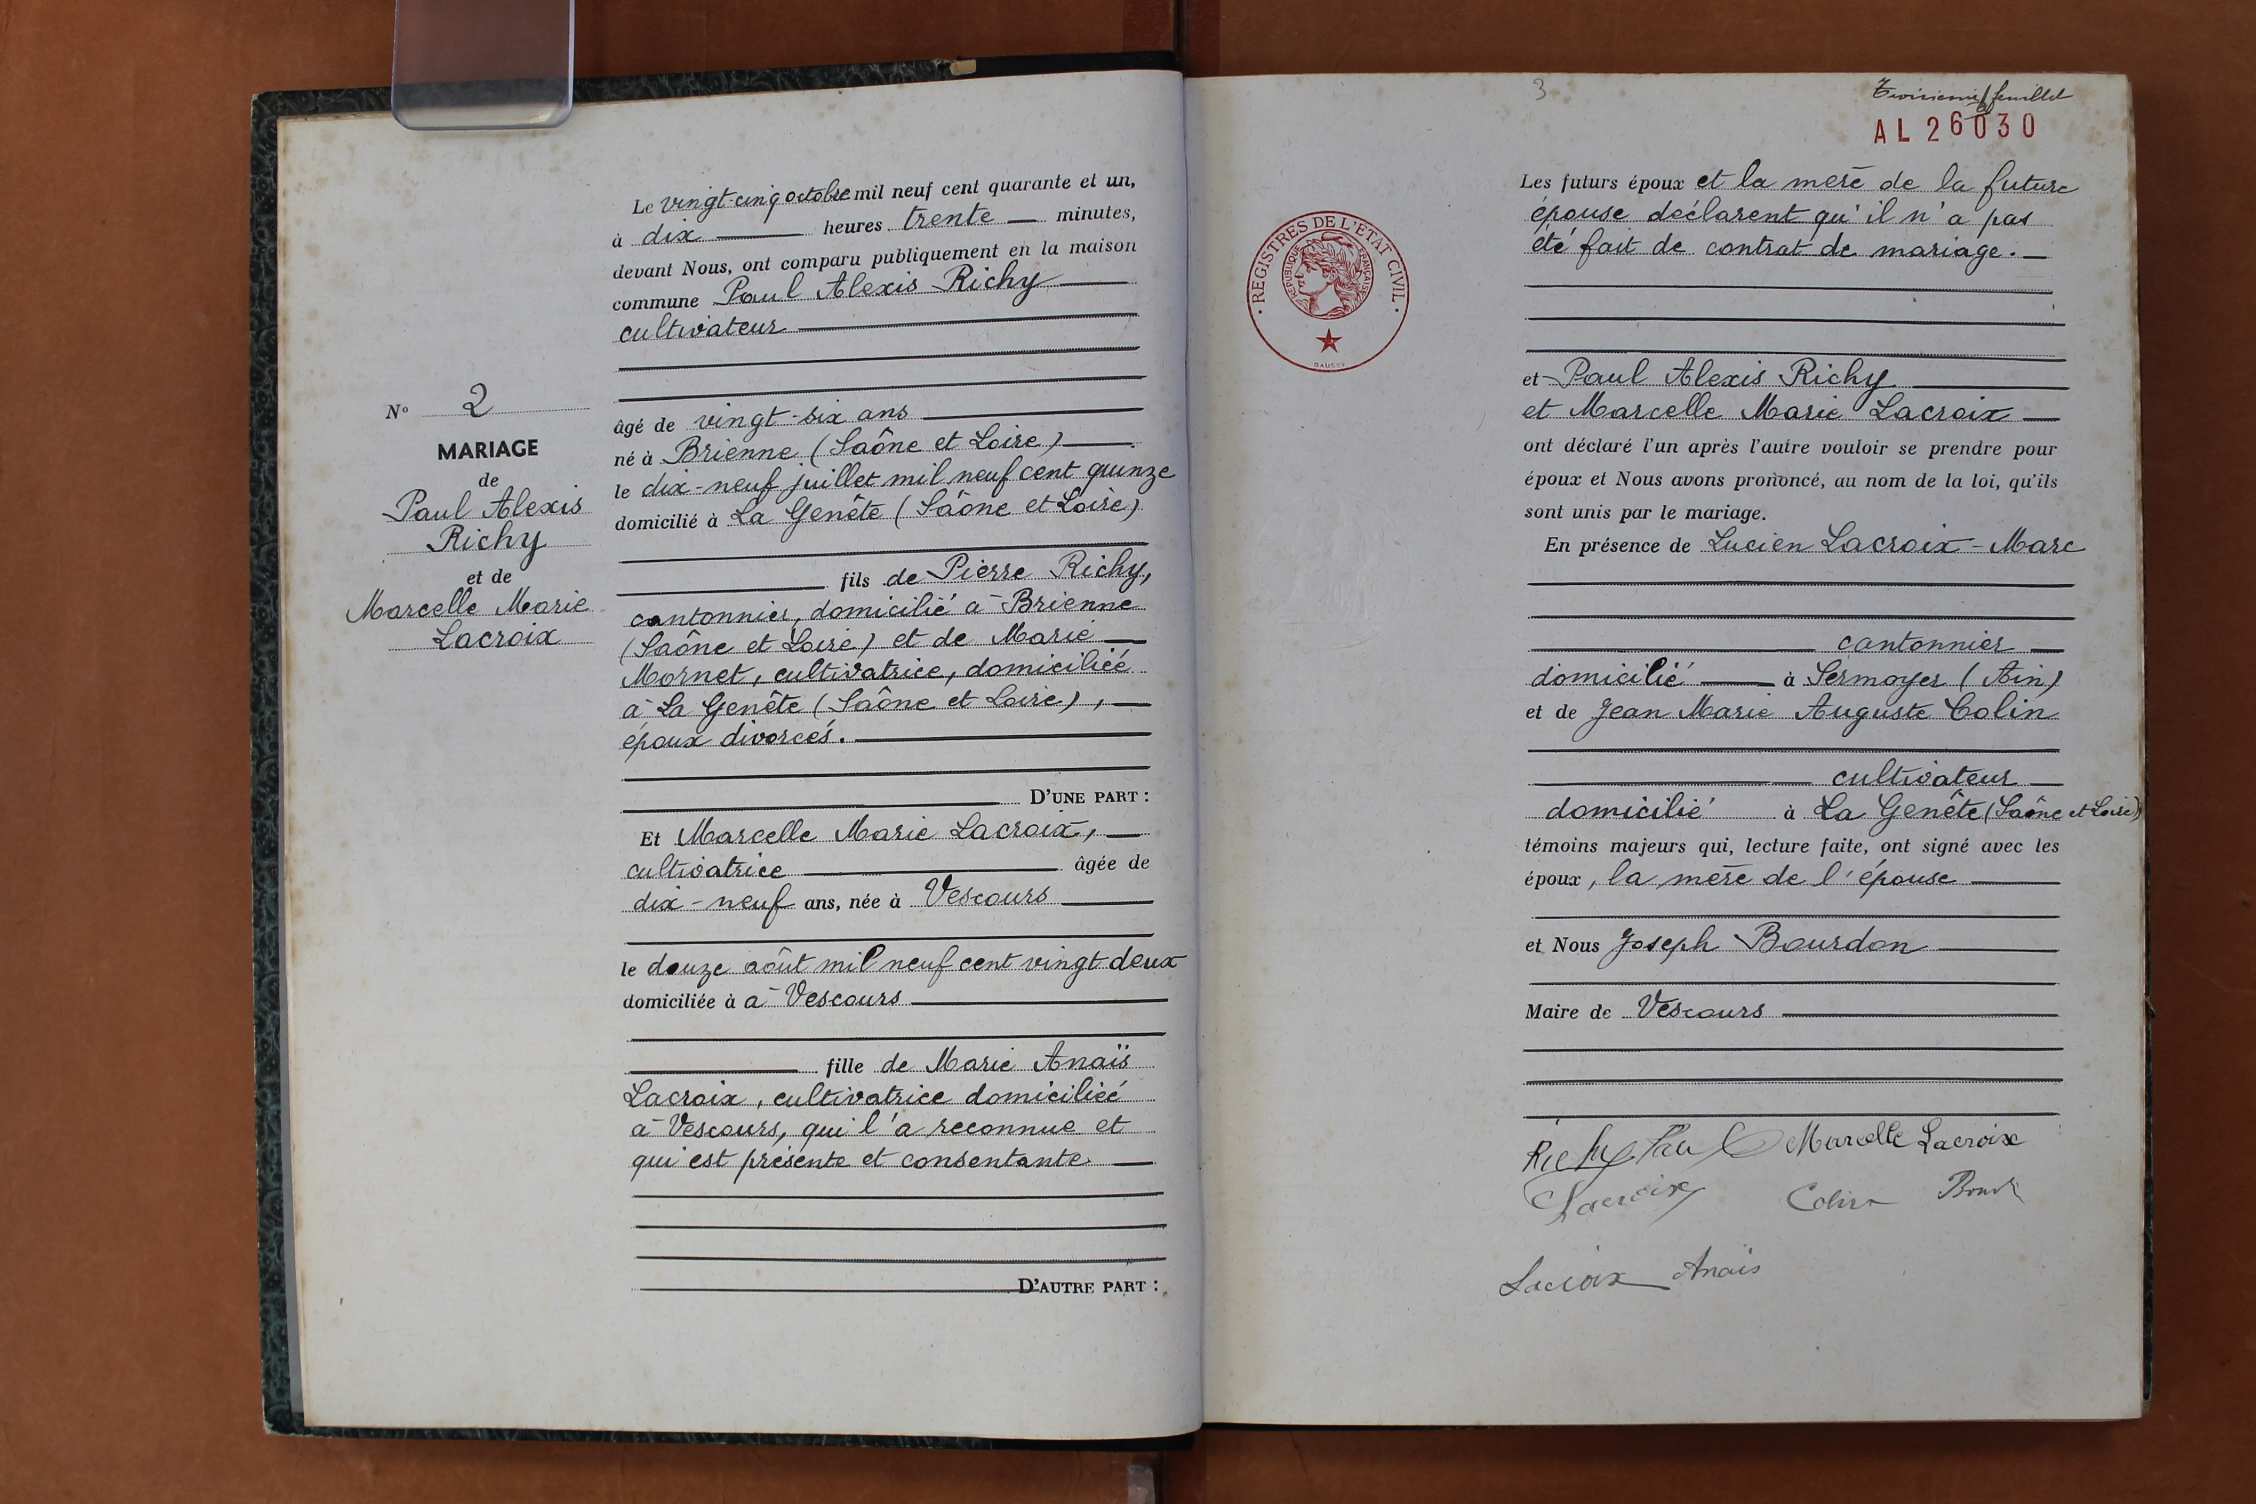 Le vingt-cinq octobre mil neuf cent quarante et un,
à dix heures trente minutes,
devant Nous, ont comparu publiquement en la maison
commune Paul Alexis Richy
cultivateur
N° 2
MARIAGE
de
Paul Alexis
Richy
et de
Marcelle Marie
Lacroix
âgé de vingt-six ans
né à Brienne (Saône et Loire)
le dix-neuf juillet mil neuf cent quinze
domicilié à La Genête (Saône et Loire)
fils de Pierre Richy,
cantonnier, domicilié à Brienne
(Saône et Loire) et de Marie
Mornet, cultivatrice, domiciliée
à La Genête (Saône et Loire),
époux divorcés.
D'UNE PART :
Et Marcelle Marie Lacroix,
cultivatrice âgée de
dix-neuf ans, née à Vescours
le douze août mil neuf cent vingt deux
domiciliée à à Vescours
fille de Marie Anaïs
Lacroix, cultivatrice domiciliée
à Vescours, qui l'a reconnue et
qui est présente et consentante.
D'AUTRE PART :
3
Troisième feuillet
AL26030
REGISTRES DE L'ÉTAT CIVIL
RÉPUBLIQUE FRANÇAISE
Les futurs époux et la mère de la future
épouse déclarent qu'il n'a pas
été fait de contrat de mariage.
et Paul Alexis Richy
et Marcelle Marie Lacroix
ont déclaré l'un après l'autre vouloir se prendre pour
époux et Nous avons prononcé, au nom de la loi, qu'ils
sont unis par le mariage.
En présence de Lucien Lacroix-Marc
cantonnier
domicilié à Sermoyer (Ain)
et de Jean Marie Auguste Colin
cultivateur
domicilié à La Genête (Saône et Loire)
témoins majeurs qui, lecture faite, ont signé avec les
époux, la mère de l'épouse
et Nous Joseph Bourdon
Maire de Vescours
Richy Paul Marcelle Lacroix
Lacroix Colin
Lacroix Anaïs